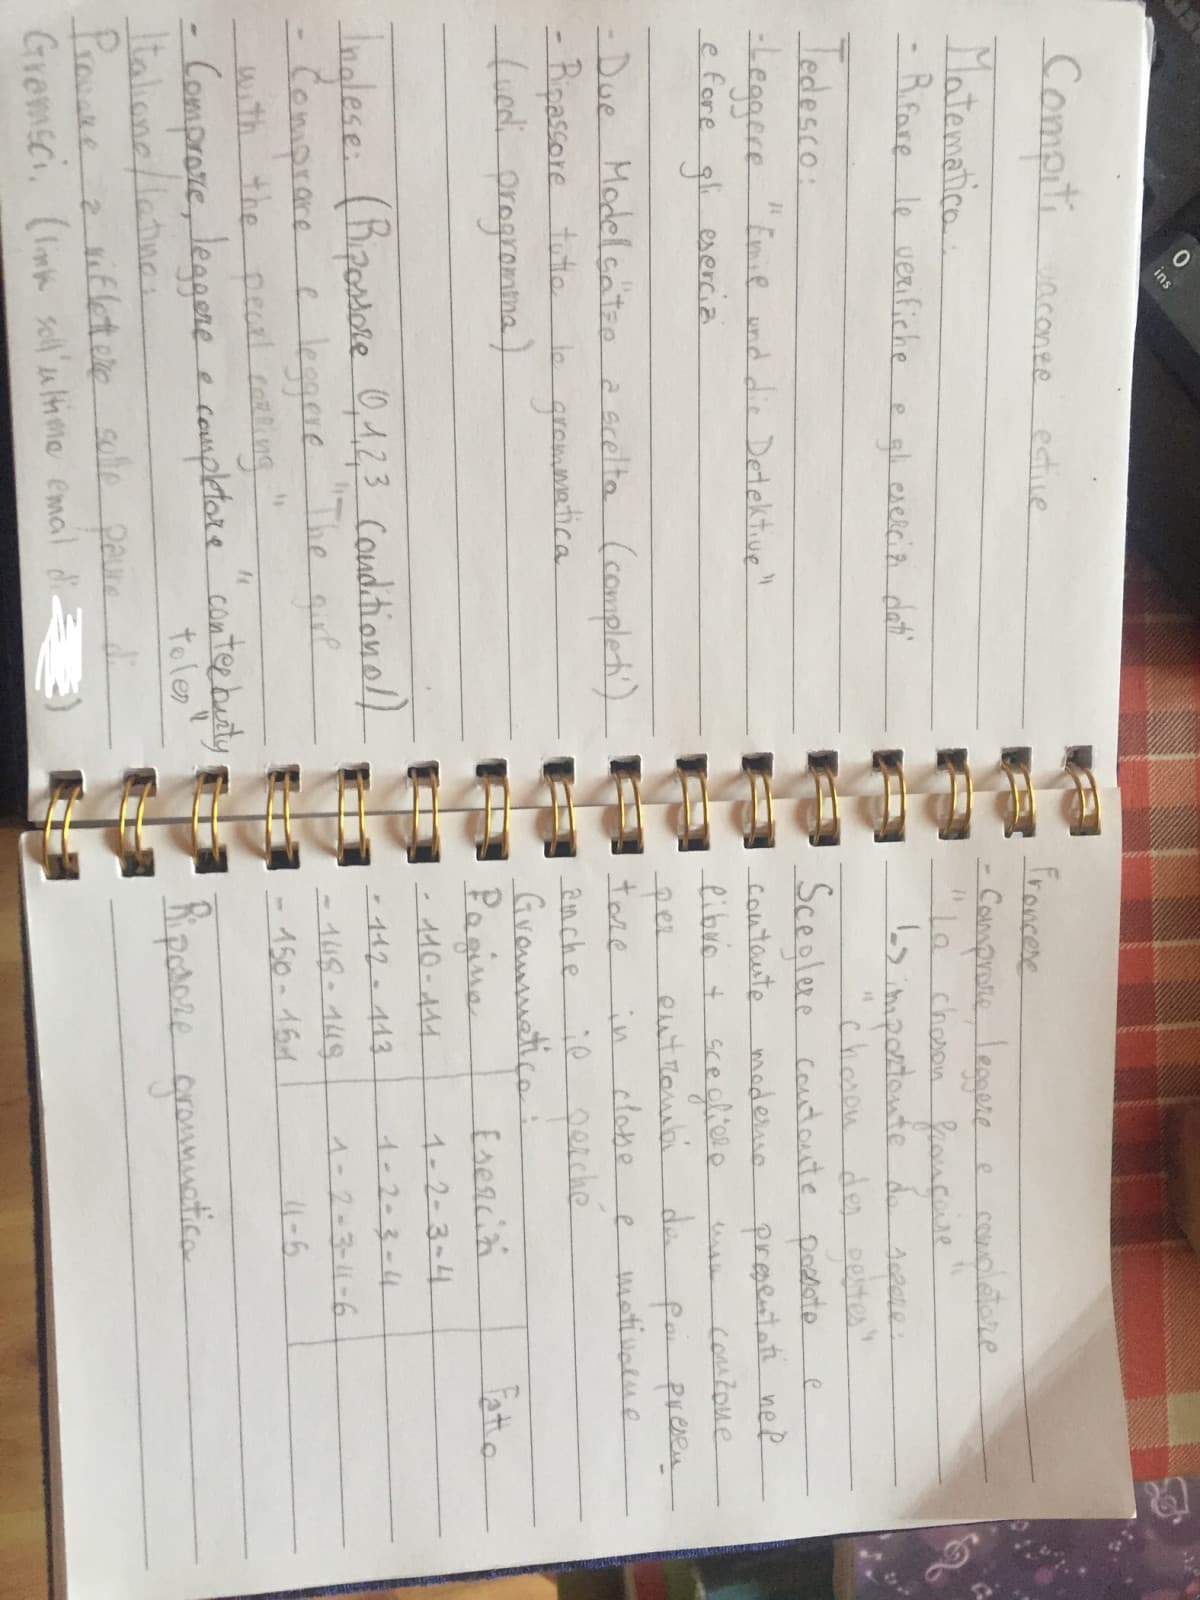 Compiti vacanze estive
Matematica:
- Rifare le verifiche e gli esercizi dati
Tedesco:
- Leggere "Emil und die Detektive"
e fare gli esercizi
- Due Modellsätze a scelta (completi)
- Ripassare tutta la grammatica
(vedi programma)
Inglese: (Ripassare 0,1,2,3 conditional)
- Comprare e leggere "The girl
with the pearl earring"
- Comprare, leggere e completare "conterbury
tales"
Italiano/latino:
Provare a riflettere sulle paure di
Gramsci. (link sull'ultima email di )
Francese
- Comprare, leggere e completare
"La chason française"
↳ importante da sapere:
"chason des gestes"
Scegliere cantante passato e
cantante moderno presentati nel
libro + scegliere una canzone
per entrambi da poi presen-
tare in classe e motivarne
anche io perché
Grammatica:
Pagina Esercizi Fatto
- 110-111 1-2-3-4
- 112-113 1-2-3-4
- 148-149 1-2-3-4-6
- 150-151 4-5
Ripassare grammatica
0
ins